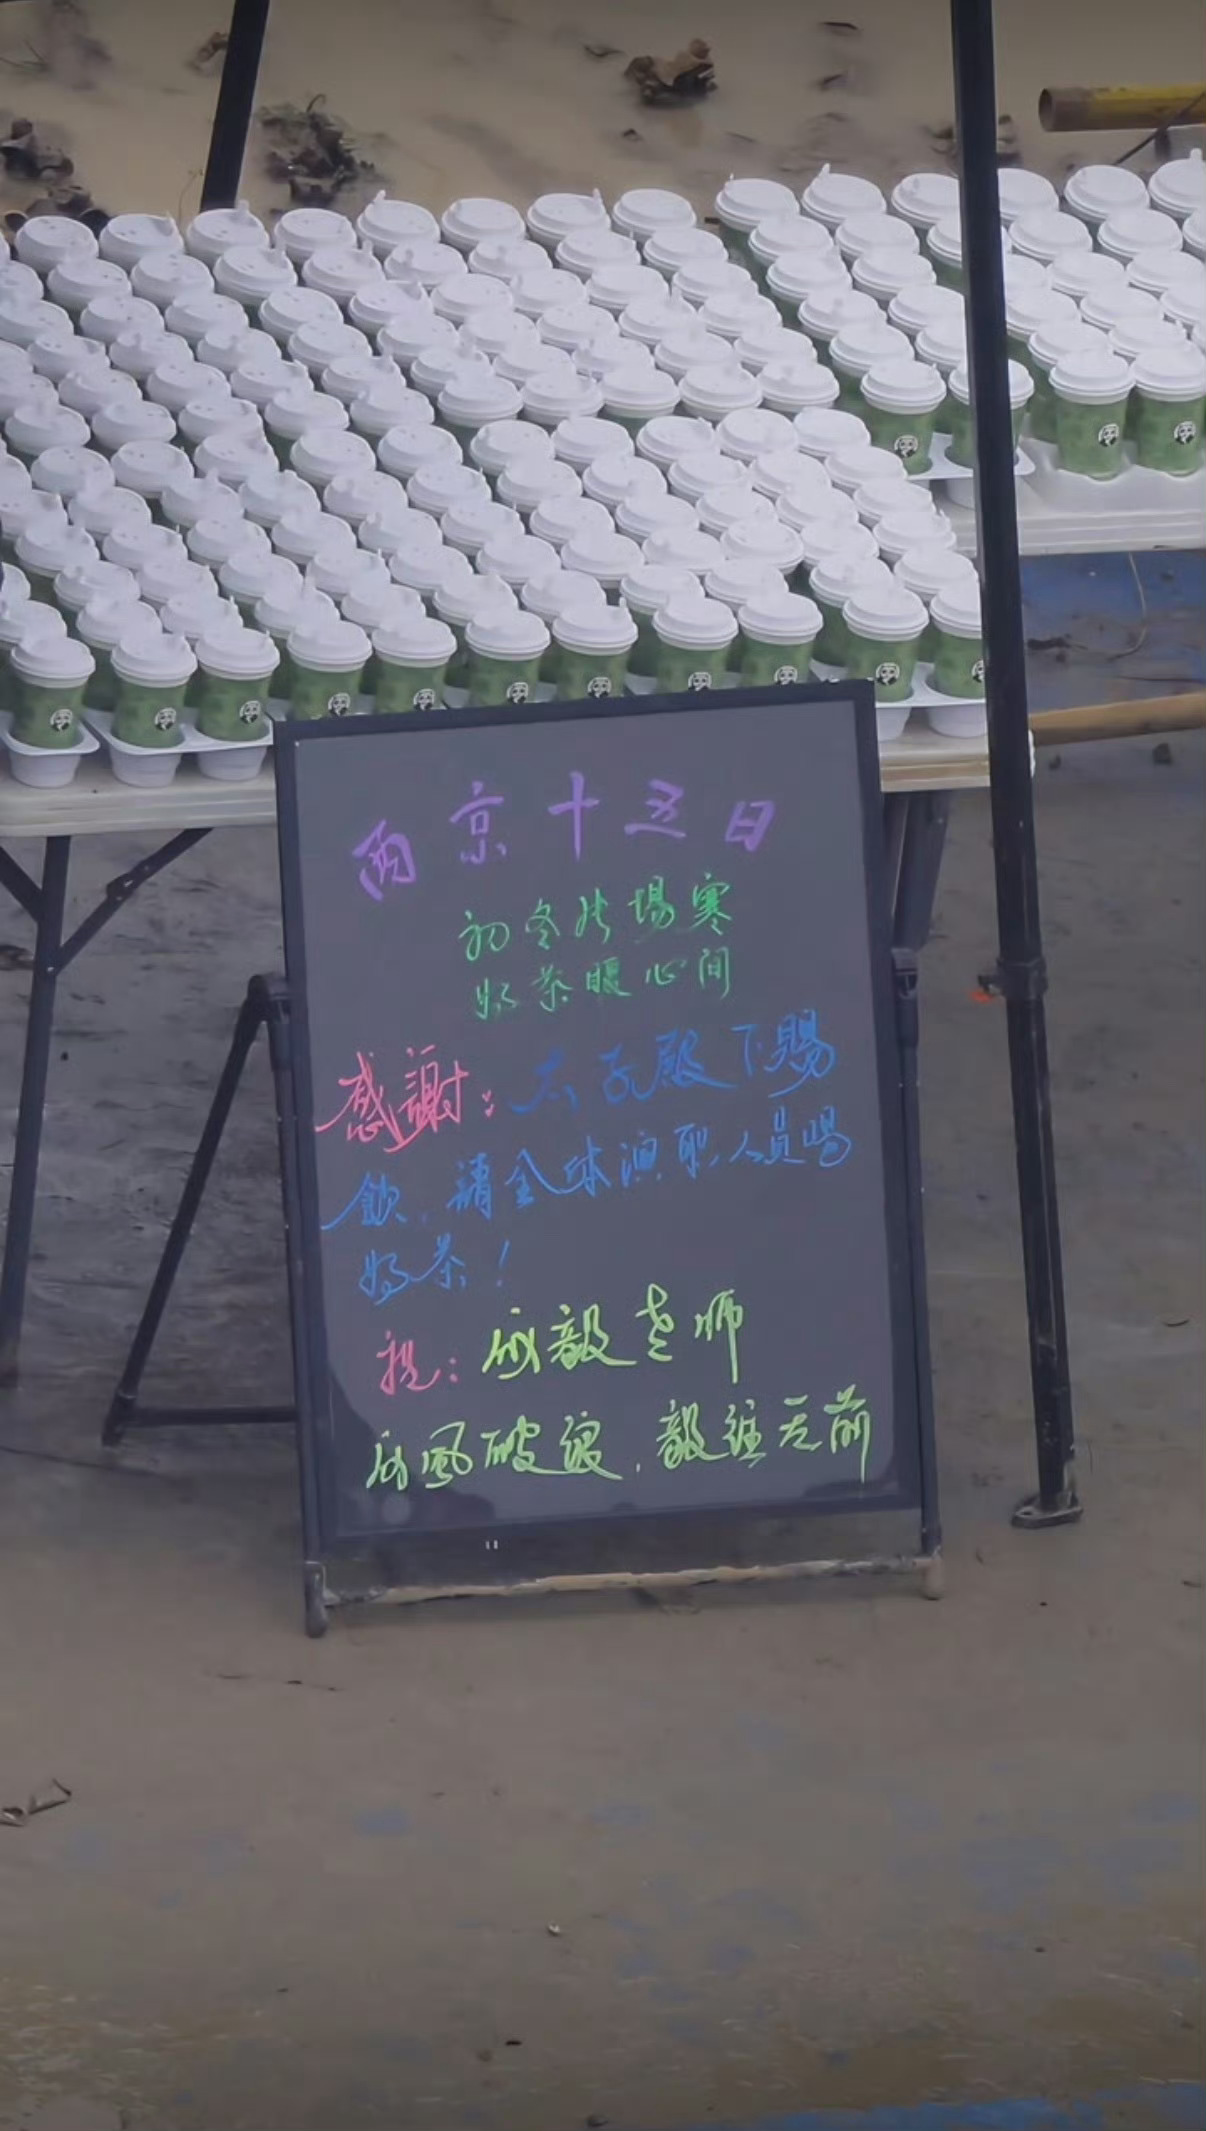 両京十五日
初冬片場寒
奶茶暖心间
感謝：太子殿下賜
飲，請全体演职人員喝
奶茶！
祝：成毅老师
成風破浪，毅往无前